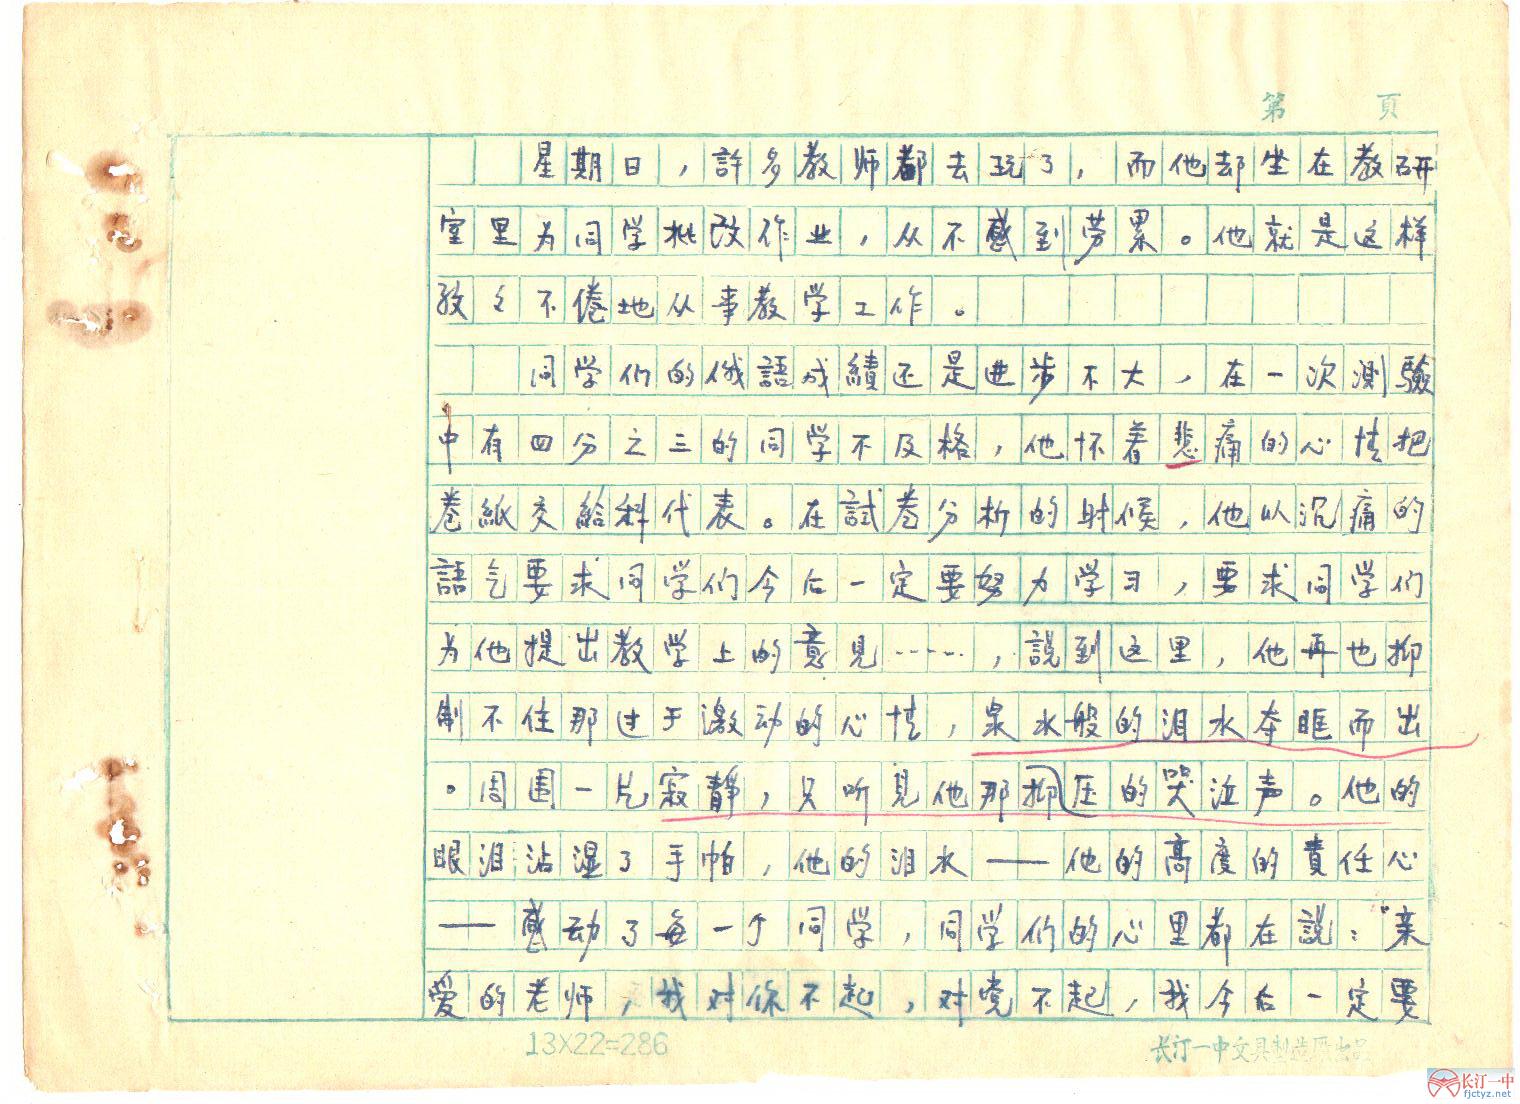 第 頁
星期日，許多教师都去玩了，而他却坐在教研
室里为同学批改作业，从不感到劳累。他就是这样
孜々不倦地从事教学工作。
同学们的俄語成績还是进步不大，在一次測驗
中有四分之三的同学不及格，他怀着悲痛的心情把
卷紙交給科代表。在試卷分析的时候，他以沉痛的
語气要求同学们今后一定要努力学习，要求同学们
为他提出教学上的意見……，説到这里，他再也抑
制不住那过于激动的心情，泉水般的泪水夺眶而出
。周围一片寂静，只听見他那抑压的哭泣声。他的
眼泪沾湿了手帕，他的泪水——他的高度的責任心
——感动了每一个同学，同学们的心里都在説："亲
爱的老师，我对你不起，对党不起，我今后一定要
13X22=286
长汀一中文具制造厂出品
长汀一中
fjctyz.net